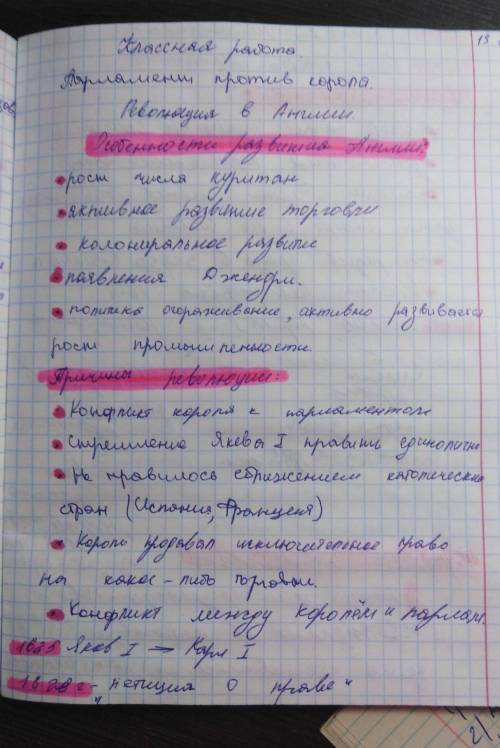 13
Классная работа.
Парламент против короля.
Революция в Англии.
Особенности развития Англии:
• рост числа пуритан
• активное развитие торговли
• колониральное развитие
• появления Джентри.
• политика огораживание, активно развивается
рост промышленности.
Причины революции:
• Конфликт короля с парламентом
• Стремление Якова I править единолично
• Не нравилось сближением католических
стран (Испания, Франция)
• Король продавал исключительное право
на какое-либо торговли.
• Конфликт между королём и парлам.
1625 Яков I → Карл I
1628 г - "петиция о праве"